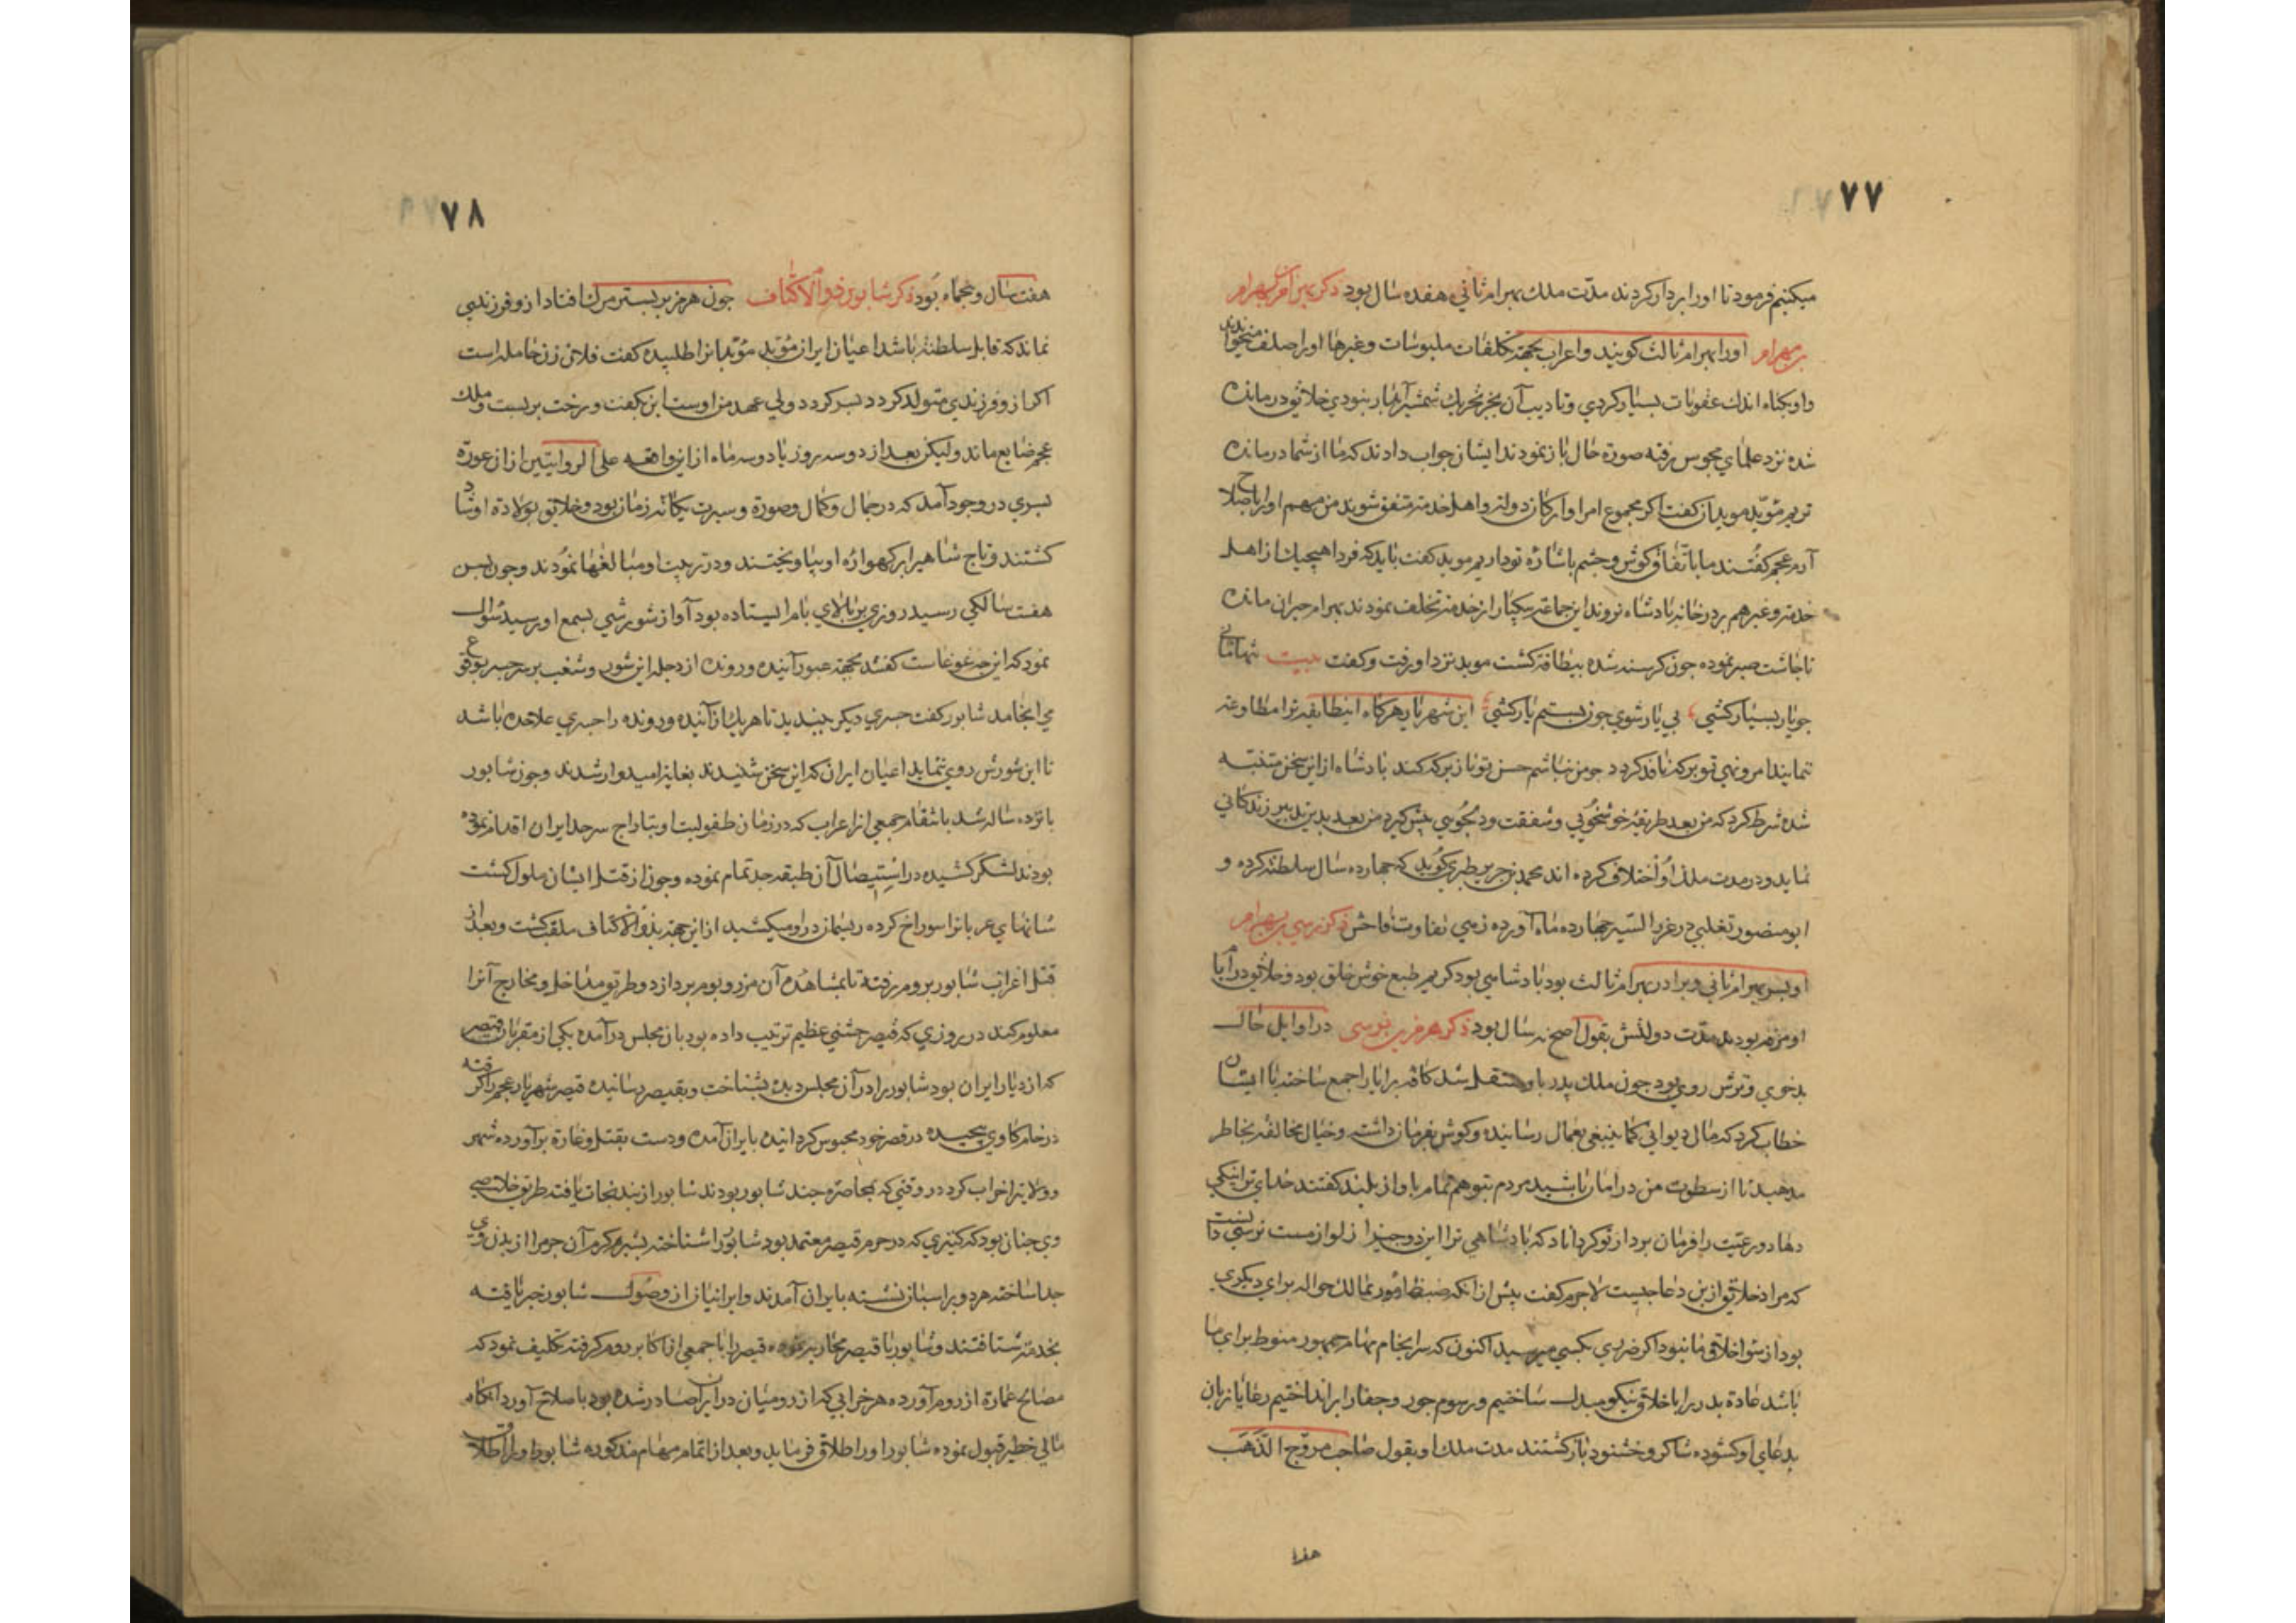 ۷۷
میکنیم فرمود تا او را بردار کردند مدّت ملك بهرام ثانی هفده سال بود ذکر بهرام بن بهرام
بن بهرام او را بهرام ثالث کویند و اعراب بجهة تکلفات ملبوسات و غیرها او را صلف میخواندند
و او بکناه اندك عقوبات بسیار کردی و تادیب آن بجز تحریك شمشیر آبدار ننبودی خلائق درمانده
شده نزد علمای مجوس رفته صورة حال باز نمودند ایشان جواب دادند که ما از شما درمانده
تریم مؤبد موبدان کفت اکر مجموع امرا و ارکان دولت و اهل خدمة متفق شوند من مهم او را باصلاح
آرم عجم کفتند ما باتفاق کوش و چشم باشارۀ تو داریم موبد کفت باید که فردا هیچیك از اهل
خدمة و غیرهم بردر خانه بادشاه نروند این جماعة بیکبار از خدمة تخلف نمودند بهرام حیران مانده
تا چاشت صبر نموده چون کرسنه شده بیطاقة کشت موبد نزد او رفت و کفت بیت تنها مانی
چو یار بسیار کشی بی یار شوی چون بستم یار کشی ای شهریار هرکاه اینطایفه ترا مطاوعة
ننمایند امر و نهی تو برکه نافذ کردد چو من نباشم حسن تو ناز برکه کند بادشاه از این سخن متنبه
شده شرط کرد که من بعد طریقۀ خوشخویی و شفقت و دلجویی پیش کیرد من بعد بدین تدبیر زندکانی
نماید و در مدت ملك او اختلاف کرده اند محمد بن جریر طبری کوید که چهارده سال سلطنة کرده و
ابو منصور تغلبی در غرر السیر چهارده ماه آورده زهی تفاوت فاحش ذکر نرسی بن بهرام
او پسر بهرام ثانی و برادر بهرام ثالث بود بادشاهی بود کریم طبع خوش خلق بود و خلائق در ایام
او مرفه بودند مدّت دولتش بقول اصح نه سال بود ذکر هرمز بن نرسی در اوایل حال
بدخوی و ترش روی بود چون ملك پدر باو منتقل شد کافه برایا را جمع ساخته با ایشان
خطاب کرد که مال دیوانی کما ینبغی بعمال رسانیده و کوش بفرمان داشته و خیال مخالفة بخاطر
مدهید تا از سطوت من در امان باشید مردم بتوهم تمام باواز بلند کفتند خدای ترا نیکی
دهاد و رعیّت را فرمان بردار تو کرداناد که بادشاهی ترا این دو چیز از لوازمست نرسی دانست
که مراد خلائق از این دعا چیست لاجرم کفت پیش از آنکه ضبط امور ممالك حواله برای دیکری
بود از سؤ اخلاق ما نبود اکر ضرری بکسی میرسید اکنون که سرانجام مهام جمهور منوط برای ما
باشد عادة بد را باخلاق نیکو مبدل ساختیم و رسوم جور و جفا را برانداختیم رعایا زبان
بدعای او کشوده شاکر و خشنود باز کشتند مدت ملك او بقول صاحب مروّج الذّهب
هفت
۷۸
هفت سال و پنجماه بود ذکر شابور ذو الاکتاف چون هرمز بر بستر مرك افتاد از و فرزندی
نماند که قابل سلطنة باشد اعیان ایران مؤبد مؤبدانرا طلبیده کفت فلان زن حامله است
اکر از و فرزندی متولد کردد پسر کردد ولی عهد من اوست این بکفت و رخت بربست و ملك
عجم ضایع ماند ولیکن بعد از دو سه روز یا دو سه ماه از این واقعه علی الروایتین از آن عورة
پسری در وجود آمد که در جمال و کمال و صورة و سیرت یکانه زمان بود و خلائق بولادة او شاد
کشتند و تاج شاهی را بر کهوارۀ او بیاویختند و در تربیت او مبالغها نمودند و چون بسن
هفت سالکی رسید روزی بر بالای بام ایستاده بود آواز شورشی بسمع او رسید سؤال
نمود که این چه غوغاست کفتند بجهة عبور آینده و رونده از دجله این شور و شغب بر سر جسر بوقوع
می انجامد شابور کفت جسری دیکر ببندید تا هر یك از آینده و رونده را جسری علاحده باشد
تا این شورش روی ننماید اعیان ایران که این سخن شنیدند بغایة امیدوار شدند و چون شابور
بانزده ساله شد بانتقام جمعی از اعراب که در زمان طفولیت او بتاراج سرحد ایران اقدام نموده
بودند لشکر کشیده در استیصال آن طبقه جد تمام نموده و چون از قتل ایشان ملول کشت
شانهای عربانرا سوراخ کرده ریسمان در او میکشید از این جهة بذو الاکتاف ملقب کشت و بعد از
قتل اعراب شابور بروم رفته تا بمشاهدۀ آن مرز و بوم پردازد و طریق مداخل و مخارج آنرا
معلوم کند در روزی که قیصر جشنی عظیم ترتیب داده بود بان مجلس در آمده یکی از مقربان قیصر
که از دیار ایران بود شابور را در آن مجلس دیده بشناخت و بقیصر رسانیده قیصر شهریار عجم را کرفته
در خام کاوی پیچیده در قصر خود محبوس کردانیده بایران آمده و دست بقتل و غارة برآورده شهر
و ولایة را خراب کرد در وقتی که بمحاصرۀ جند شابور بودند شابور از بند نجات یافت طریق خلاصی
وی چنان بود که کنیزی که در حرم قیصر معتمد بود شابور را شناخته بشیر کرم آن چرم را از بدن وی
جدا ساخته هر دو بر اسبان نشسته بایران آمدند و ایرانیان از وصول شابور خبر یافته
بخدمة شتافتند و شابور با قیصر محاربه نموده قیصر را با جمعی از اکابر روم کرفته تکلیف نمود که
مصالح عمارة از روم آورده هر خرابی که از رومیان در ایران صادر شده بود باصلاح آورد آنکاه
مالی خطیر قبول نموده شابور او را اطلاق فرماید و بعد از اتمام مهام مذکوره شابور او را